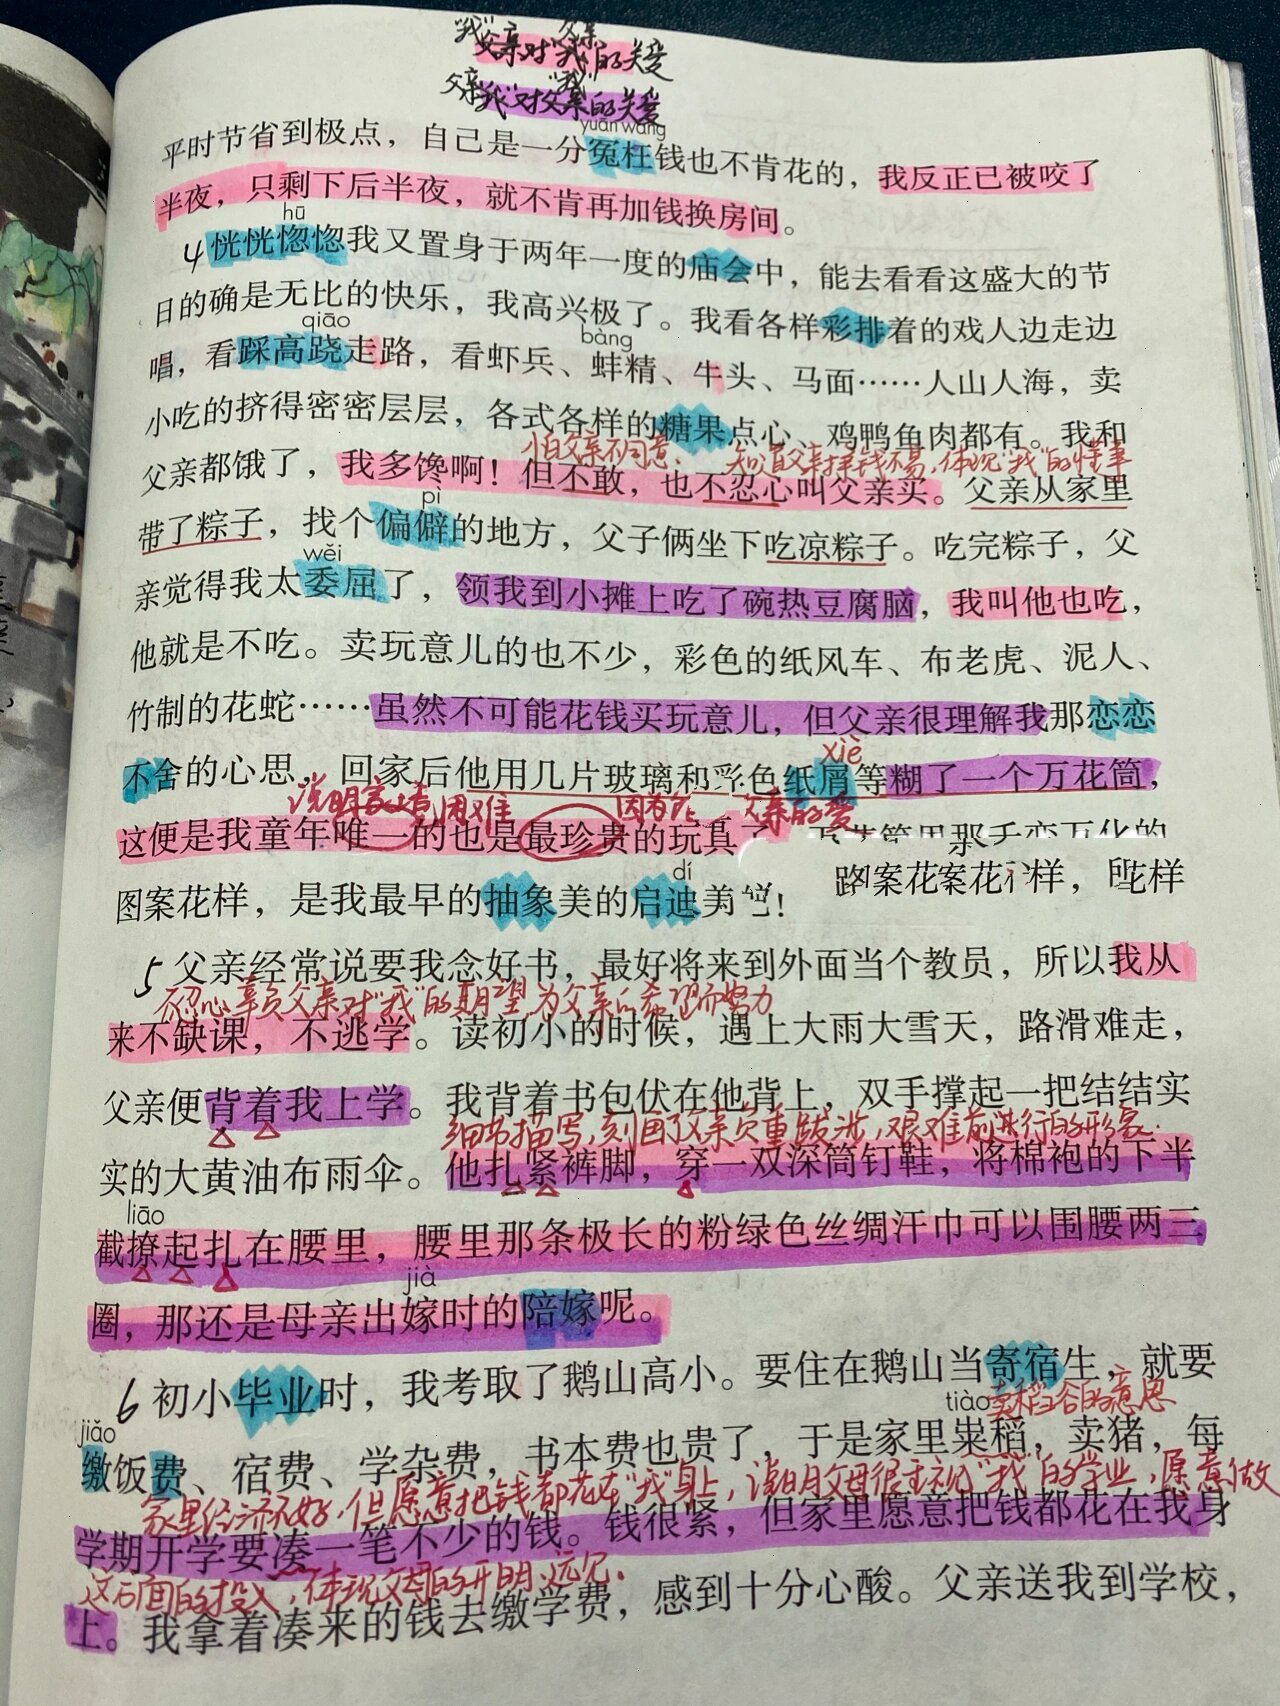 "我"
父亲
父亲对"我"的关爱
父亲
"我"
"我"对父亲的关爱
yuān wang
平时节省到极点，自己是一分冤枉钱也不肯花的，我反正已被咬了
半夜，只剩下后半夜，就不肯再加钱换房间。
hū
4 恍恍惚惚我又置身于两年一度的庙会中，能去看看这盛大的节
日的确是无比的快乐，我高兴极了。我看各样彩排着的戏人边走边
qiāo
bàng
唱，看踩高跷走路，看虾兵、蚌精、牛头、马面……人山人海，卖
小吃的挤得密密层层，各式各样的糖果点心、鸡鸭鱼肉都有。我和
怕父亲不同意、知道父亲挣钱不易，体现"我"的懂事
父亲都饿了，我多馋啊！但不敢，也不忍心叫父亲买。父亲从家里
pì
带了粽子，找个偏僻的地方，父子俩坐下吃凉粽子。吃完粽子，父
wěi
亲觉得我太委屈了，领我到小摊上吃了碗热豆腐脑，我叫他也吃，
他就是不吃。卖玩意儿的也不少，彩色的纸风车、布老虎、泥人、
竹制的花蛇……虽然不可能花钱买玩意儿，但父亲很理解我那恋恋
xiè
不舍的心思，回家后他用几片玻璃和彩色纸屑等糊了一个万花筒，
说明家境困难
父亲的爱
这便是我童年唯一的也是最珍贵的玩具
dí
图案花样，是我最早的抽象美的启迪
5 父亲经常说要我念好书，最好将来到外面当个教员，所以我从
不忍心辜负父亲对"我"的期望，为父亲的希望而努力
来不缺课，不逃学。读初小的时候，遇上大雨大雪天，路滑难走，
父亲便背着我上学。我背着书包伏在他背上，双手撑起一把结结实
细节描写，刻画父亲负重跋涉，艰难前进行的形象.
实的大黄油布雨伞。他扎紧裤脚，穿一双深筒钉鞋，将棉袍的下半
liāo
截撩起扎在腰里，腰里那条极长的粉绿色丝绸汗巾可以围腰两三
jià
圈，那还是母亲出嫁时的陪嫁呢。
6 初小毕业时，我考取了鹅山高小。要住在鹅山当寄宿生，就要
jiǎo
tiào
卖稻谷的意思
缴饭费、宿费、学杂费，书本费也贵了，于是家里粜稻，卖猪，每
家里经济不好，但愿意把钱都花在"我"身上，说明父母很重视"我"的学业，愿意做
学期开学要凑一笔不少的钱。钱很紧，但家里愿意把钱都花在我身
这方面的投入，体现父母的开明、远见.
上。我拿着凑来的钱去缴学费，感到十分心酸。父亲送我到学校，